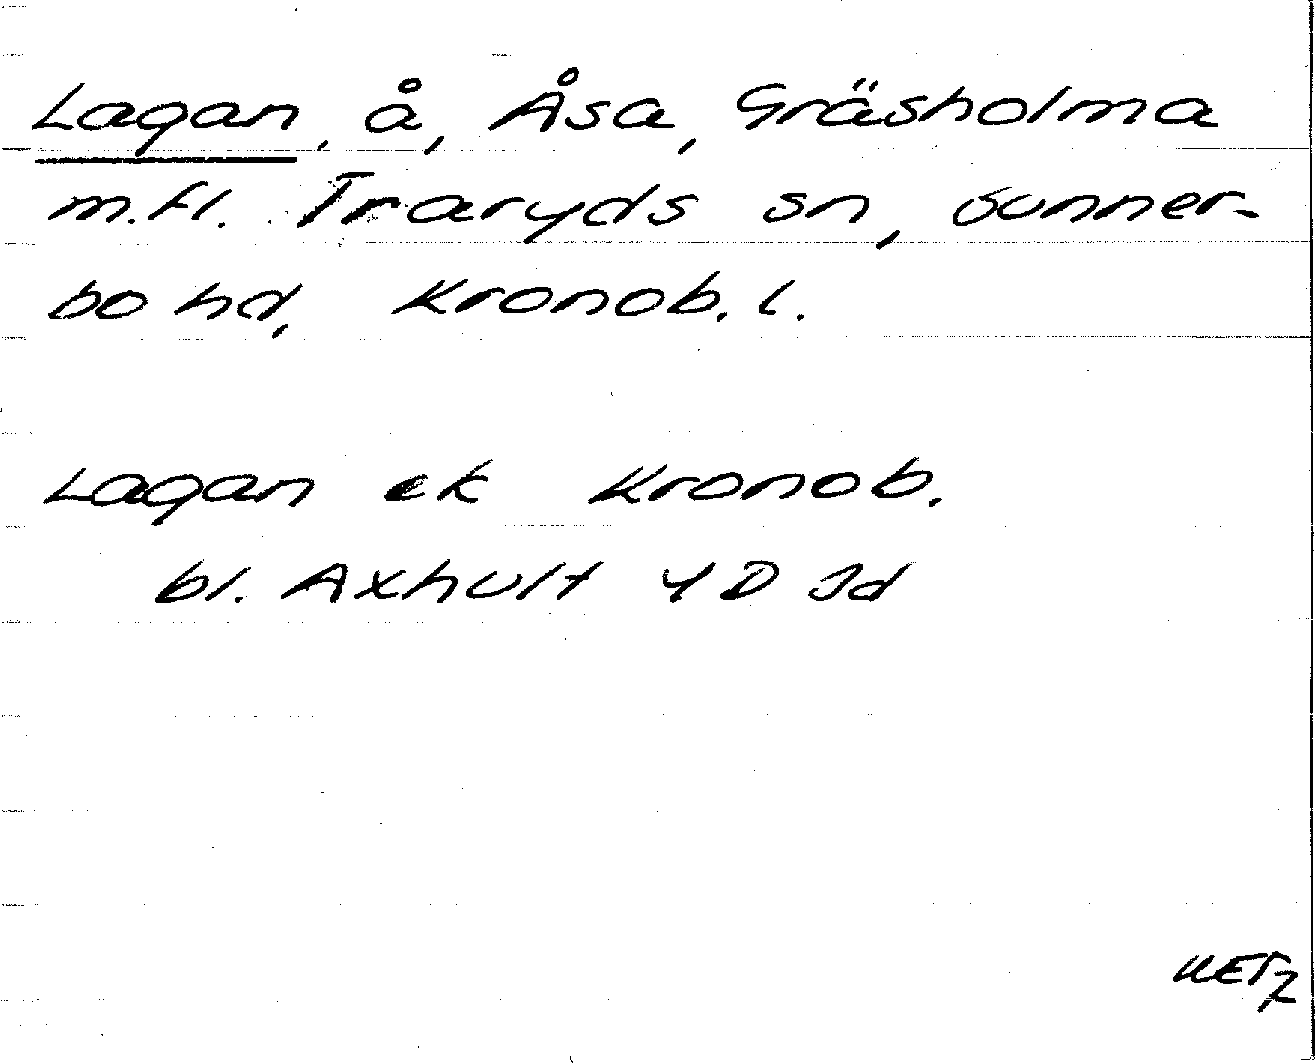 Lagan, å, Åsa, Gräsholma
m.fl. Traryds sn, Sunner-
bo hd, Kronob. l.
Lagan ek Kronob.
bl. Axhult 4D Jd